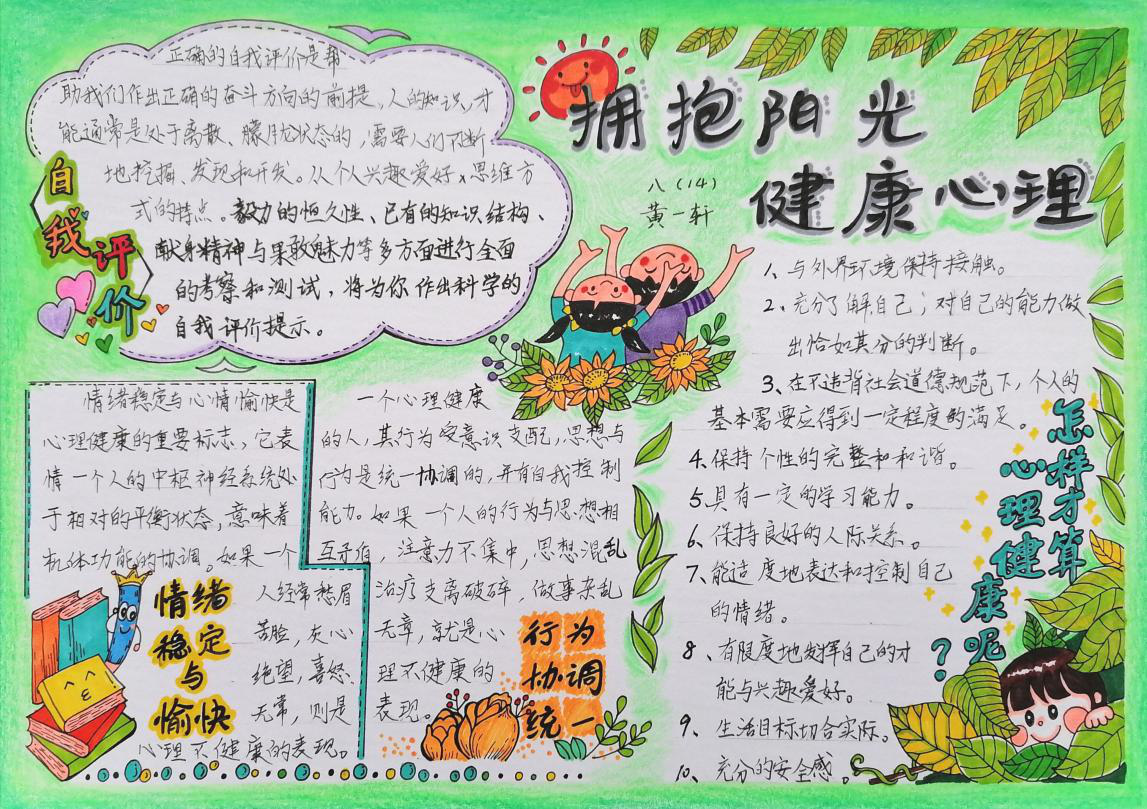 拥抱阳光
健康心理
八(14)
黄一轩
自我评价
正确的自我评价是帮
助我们作出正确的奋斗方向的前提。人的知识、才
能通常是处于离散、朦胧状态的，需要人们不断
地挖掘、发现和开发。从个人兴趣爱好、思维方
式的特点。毅力的恒久性、已有的知识结构、
献身精神与果敢魅力等多方面进行全面
的考察和测试，将为你作出科学的
自我评价提示。
情绪稳定与心情愉快是
心理健康的重要标志，它表
情一个人的中枢神经系统处
于相对的平衡状态，意味着
机体功能的协调。如果一个
人经常愁眉
苦脸，灰心
绝望，喜怒
无常，则是
心理不健康的表现。
情绪
稳定
与
愉快
一个心理健康
的人，其行为受意识支配，思想与
行为是统一协调的，并有自我控制
能力。如果一个人的行为与思想相
互矛盾，注意力不集中，思想混乱
治疗支离破碎，做事杂乱
无章，就是心
理不健康的
表现。
行为
协调
统一
怎样才算
心理健康呢？
1、与外界环境保持接触。
2、充分了解自己；对自己的能力做
出恰如其分的判断。
3、在不违背社会道德规范下，个人的
基本需要应得到一定程度的满足。
4、保持个性的完整和和谐。
5、具有一定的学习能力。
6、保持良好的人际关系。
7、能适度地表达和控制自己
的情绪。
8、有限度地发挥自己的才
能与兴趣爱好。
9、生活目标切合实际。
10、充分的安全感。